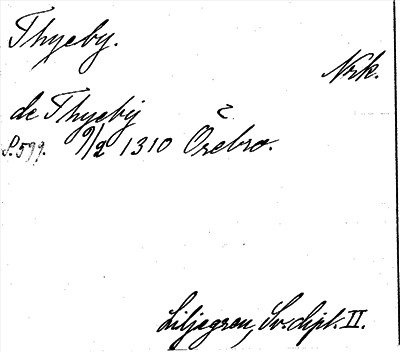 Thyeby.
Nrk.
de Thyeby
S. 599. 9/2 1310 Örebro.
Liljegren, Sv. dipl. II.